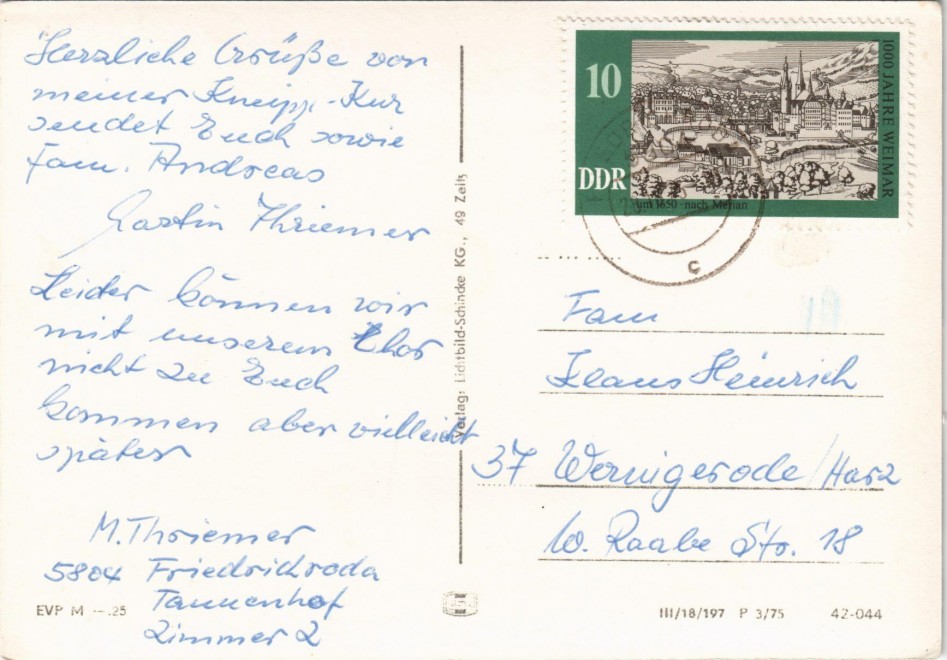 Herzliche Grüße von
meiner Kneipp-Kur
sendet Euch sowie
Fam. Andreas
Martin Thriemer
Leider können wir
mit unserem Chor
nicht zu Euch
kommen aber vielleicht
später
M. Thriemer
5804 Friedrichroda
Tannenhof
Zimmer 2
EVP M -.25
Verlag: Lichtbild-Schincke KG., 49 Zeitz
10
DDR
um 1650 · nach Merian
1000 JAHRE WEIMAR
c
Fam
Klaus Heinrich
37 Wernigerode/Harz
W. Raabe Str. 18
III/18/197 P 3/75 42-044